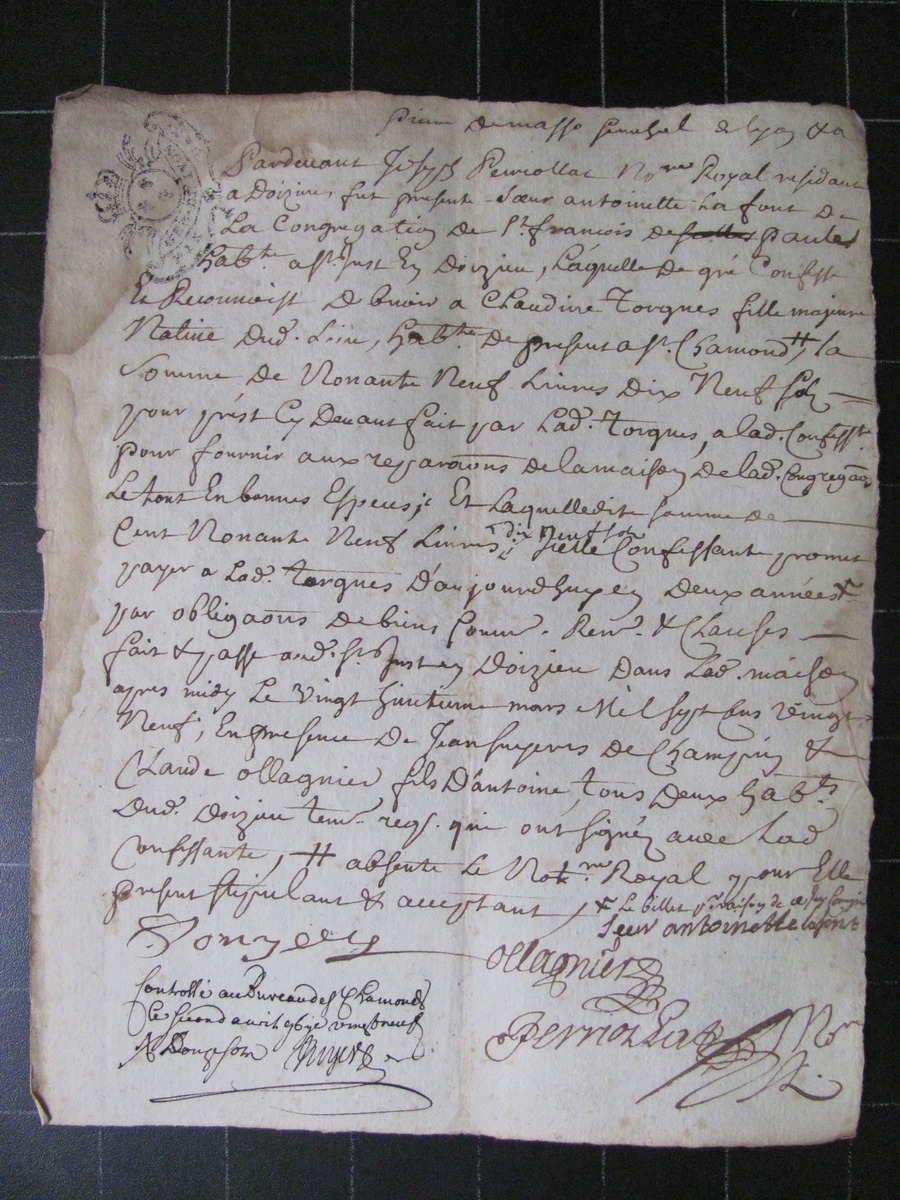 de lyon &a
Pardevant Joseph Perriollat Nore Royal residant
a Doizieu fut presente Soeur antoinette La font de
La Congregation de St. francois de salles paules
habte a St. Just En doizieu, Laquelle de gré Confesse
Et Reconnoist Debvoir a Claudine Torgues fille majeure
Native dud. Lieu, habte. De present a St. Chamond #, la
Somme de Nonante Neuf Livres dix Neuf sols
pour prest Cy Devant fait par Lad. Torgues, a lad. Confesste.
pour fournir aux repparaons de la maison de lad. Congregaon
Le tout En bonnes Especes; Et Laquelledite somme de
Cent Nonante Neuf Livres dix neuf sols Confessante promet
payer a Lad. Torgues D'aujourdhuy en Deux années +
par obligaons de biens Renon. & Clauses
fait & passe aud. St. Just en Doizieu Dans Lad. maison
apres midy Le vingt huitieme mars Mil sept Cens vingt
Neuf, En presence De Jean de & 
Claude ollagnier fils D'antoine, tous Deux habts
Dud. Doizieu tem. req. qui ont signé avec Lad
Confessante, # absente Le Notre. Royal pour Elle
present stipulant & acceptant, + Le billet
Seur antoinette lafont
ollagnier
Controllé au Bureau de St Chamond
Le second avril
Perriollat Nore